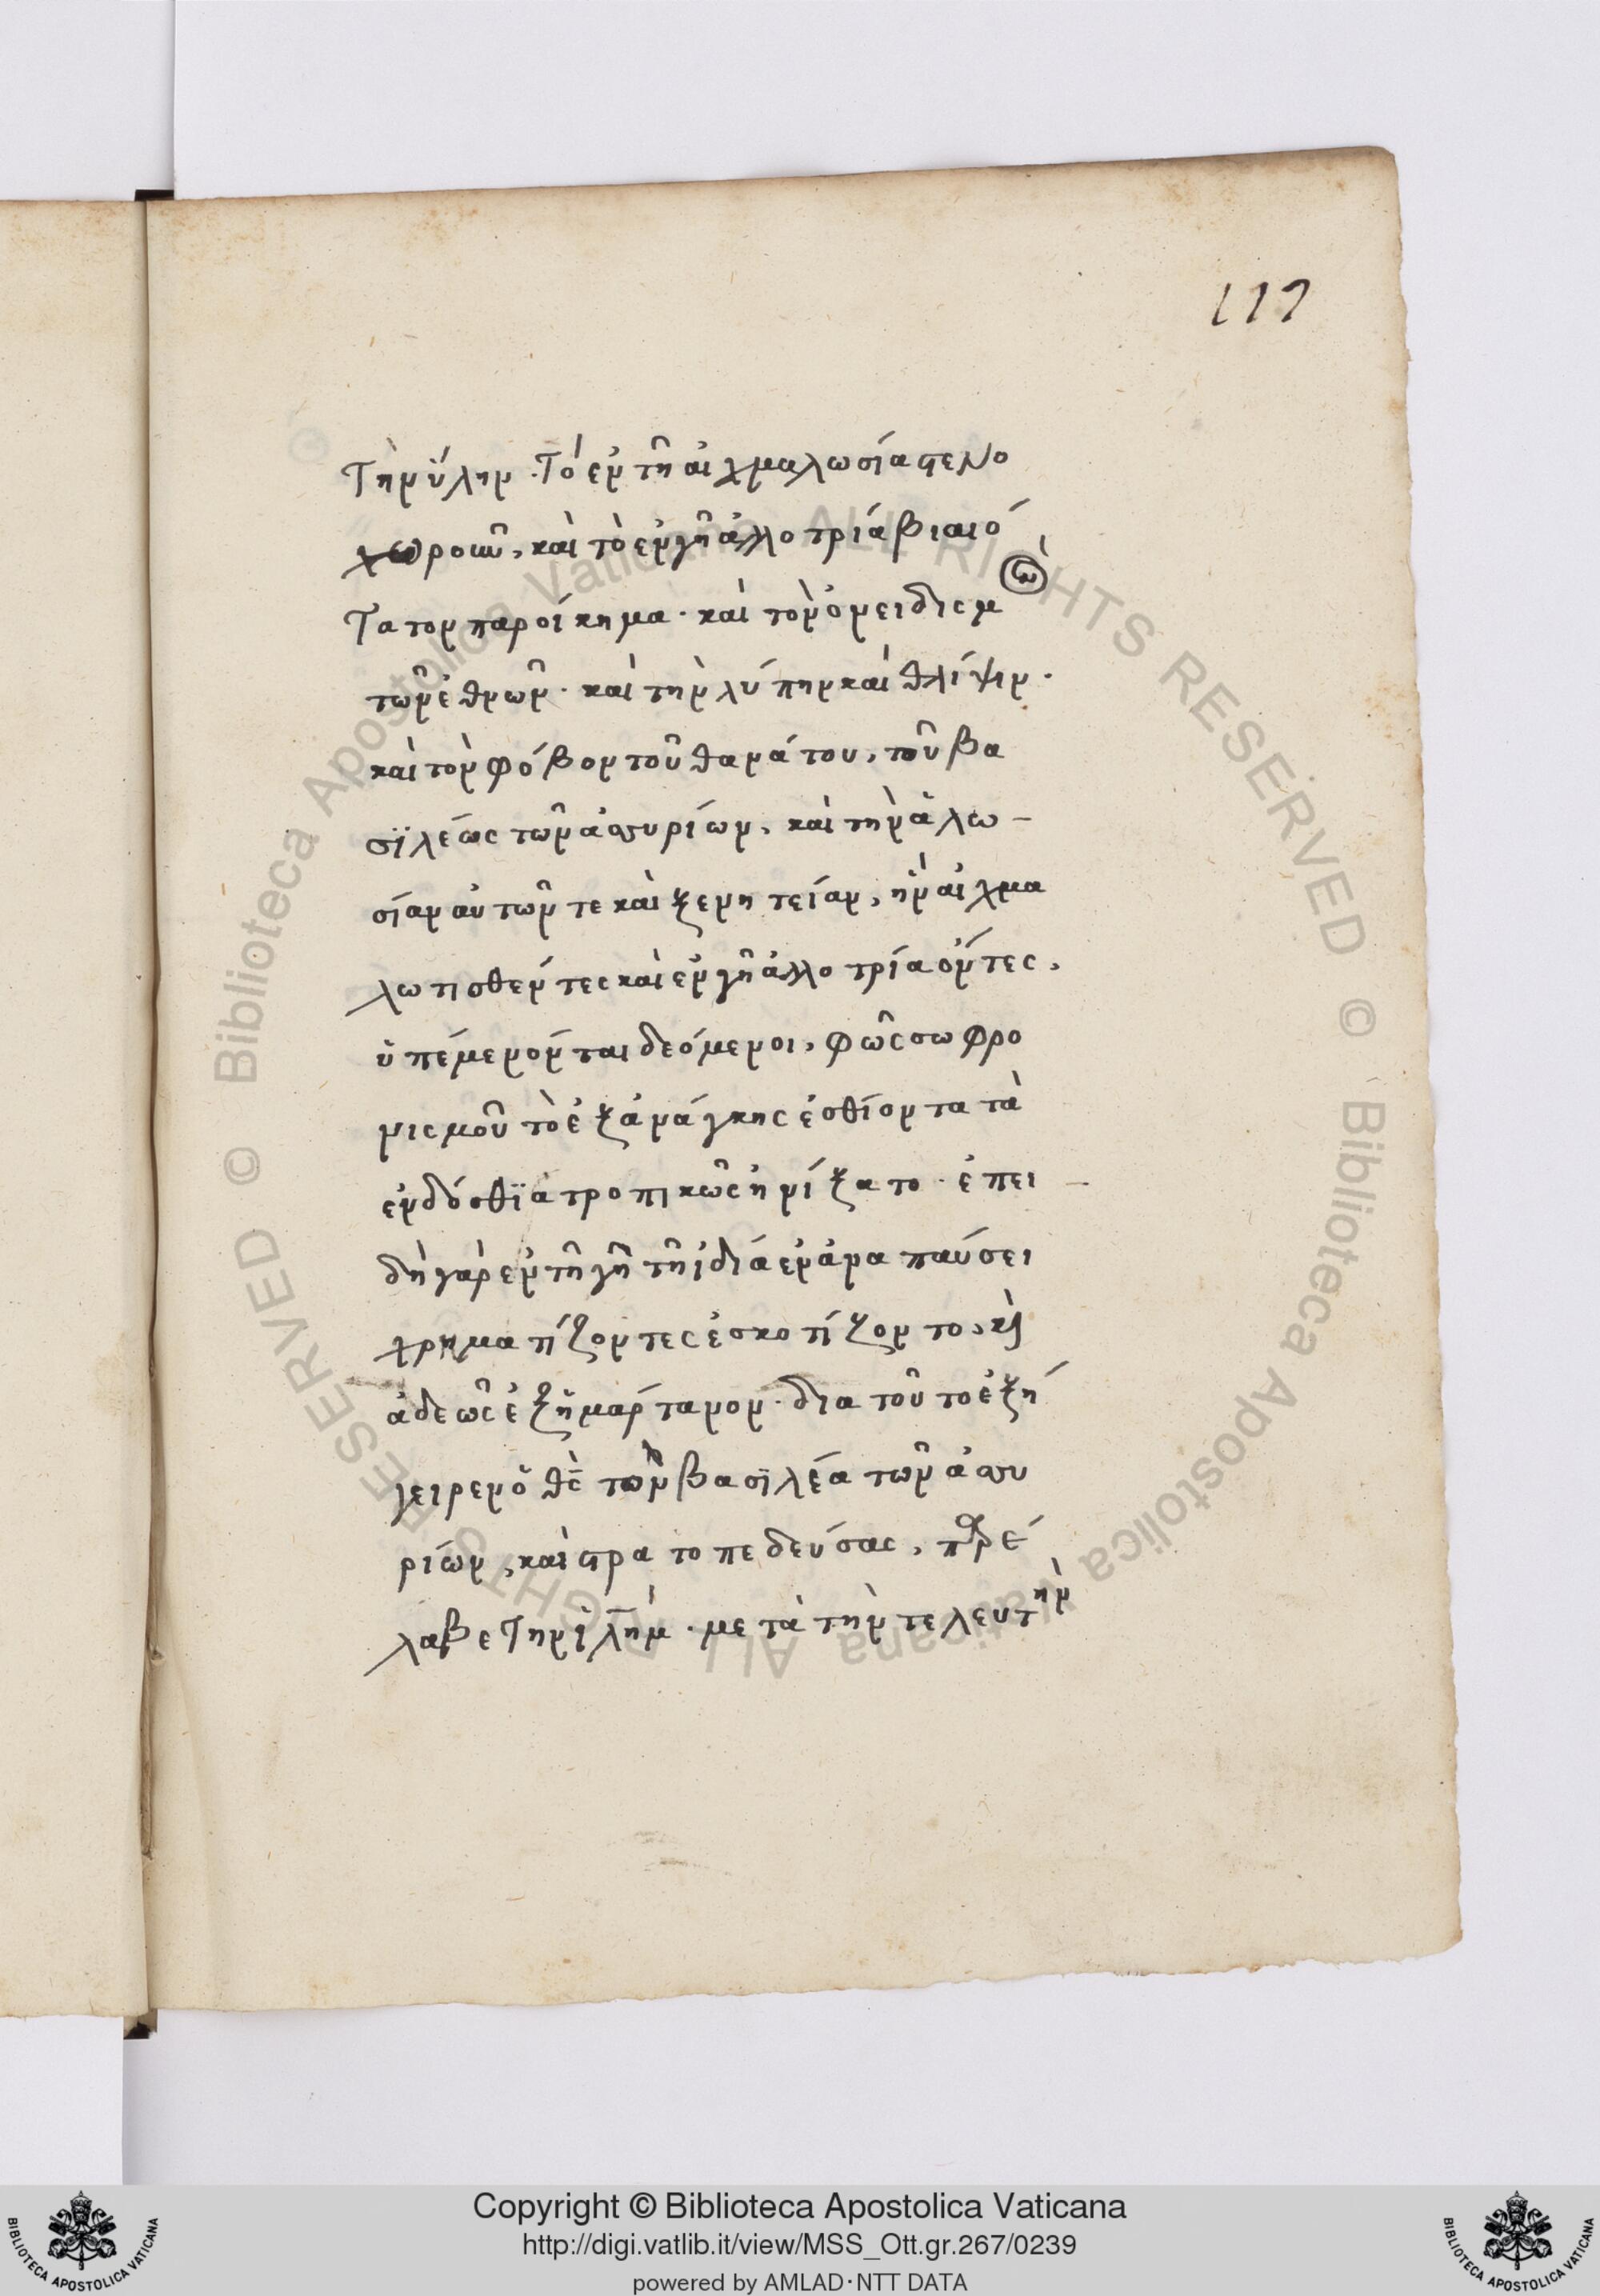 117
Τὴν ὕλην · Τὸ ἐν τῆ αἰχμαλωσία στενο
χωρον̃, καὶ τὸ ἐν γῆ ἀλλοτρία βιαιό
Τατον παροίκημα · καὶ τὸν ὀνειδισμὸν
τῶν ἐθνῶν · καὶ τὴν λύπην καὶ θλίψιν ·
καὶ τὸν φόβον τοῦ θανάτου, τοῦ βα
σϊλέως τῶν ἀσσυρίων, καὶ τὴν ἀλω-
σίαν αὐτῶν τε καὶ ξενητείαν, ἣν αἰχμα
λωτισθέντες καὶ ἐν γῆ ἀλλοτρία ὄντες,
ὑπέμενον ται δεόμενοι, φῶς σωφρο
νισμοῦ τὸ ἐξ ἀνάγκης ἐσθίοντα τὰ
ἐνδόσθϊα τροπικῶς ἠνίξατο · ἐπει-
δὴ γὰρ ἐν τῆ γῆ τῆ ἰδία ἐν ἀναπαύσει
χρηματίζοντες ἐσκοτίζοντο, κὶ
ἀδεῶς ἐξημάρτανον · διατοῦτο ἐξή
γειρεν ὁ θς̄ τὸν βασϊλέα τῶν ἀσσυ
ρίων, καὶ στρατοπεδεύσας, παρέ
λαβε Τὴν ἰλῆμ · μετὰ τὴν τελευτὴν
Copyright © Biblioteca Apostolica Vaticana
http://digi.vatlib.it/view/MSS_Ott.gr.267/0239
powered by AMLAD·NTT DATA
© Biblioteca Apostolica Vaticana ALL RIGHTS RESERVED © Biblioteca Apostolica Vaticana ALL RIGHTS RESERVED
BIBLIOTECA APOSTOLICA VATICANA
BIBLIOTECA APOSTOLICA VATICANA